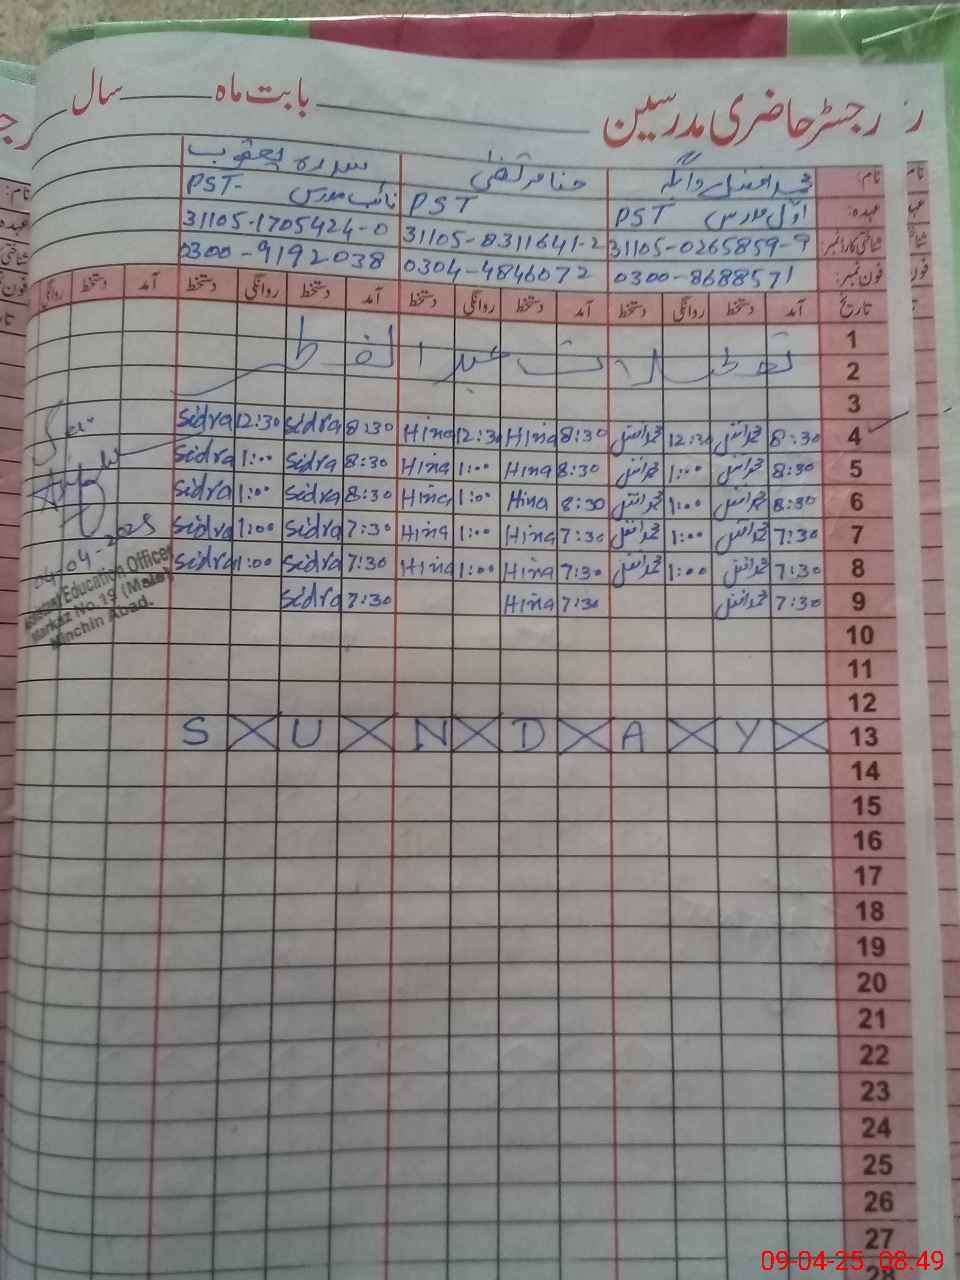 رجسٹر حاضری مدرسین بابت ماہ سال
نام: محمد افضل حنا مرتضیٰ سدرہ یعقوب
عہدہ: اوّل مدرس PST PST نائب مدرس PST-
شناختی کارڈ نمبر: 31105-0265859-9 31105-8311641-2 31105-1705424-0
فون نمبر: 0300-8688571 0304-4846072 0300-9192038
تاریخ آمد دستخط روانگی دستخط آمد دستخط روانگی دستخط آمد دستخط روانگی دستخط آمد دستخط روانگی
1
2 تعطیلات عید الفطر
3
4 8:30 12:30 8:30 Hina 12:30 Hina 8:30 Sidra 12:30 Sidra
5 8:30 1:00 8:30 Hina 1:00 Hina 8:30 Sidra 1:00 Sidra
6 8:30 1:00 8:30 Hina 1:00 Hina 8:30 Sidra 1:00 Sidra
7 7:30 1:00 7:30 Hina 1:00 Hina 7:30 Sidra 1:00 Sidra
8 7:30 1:00 7:30 Hina 1:00 Hina 7:30 Sidra 1:00 Sidra
9 7:30 7:30 Hina 7:30 Sidra
04-04-2025
Education Officer
Markaz No.19 (Male)
Minchin Abad.
10
11
12
S U N D A Y 13
14
15
16
17
18
19
20
21
22
23
24
25
26
27
28
09-04-25 08:49